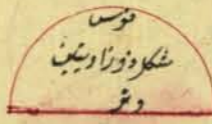 قوس
شكل ذو زاويتين
وتر